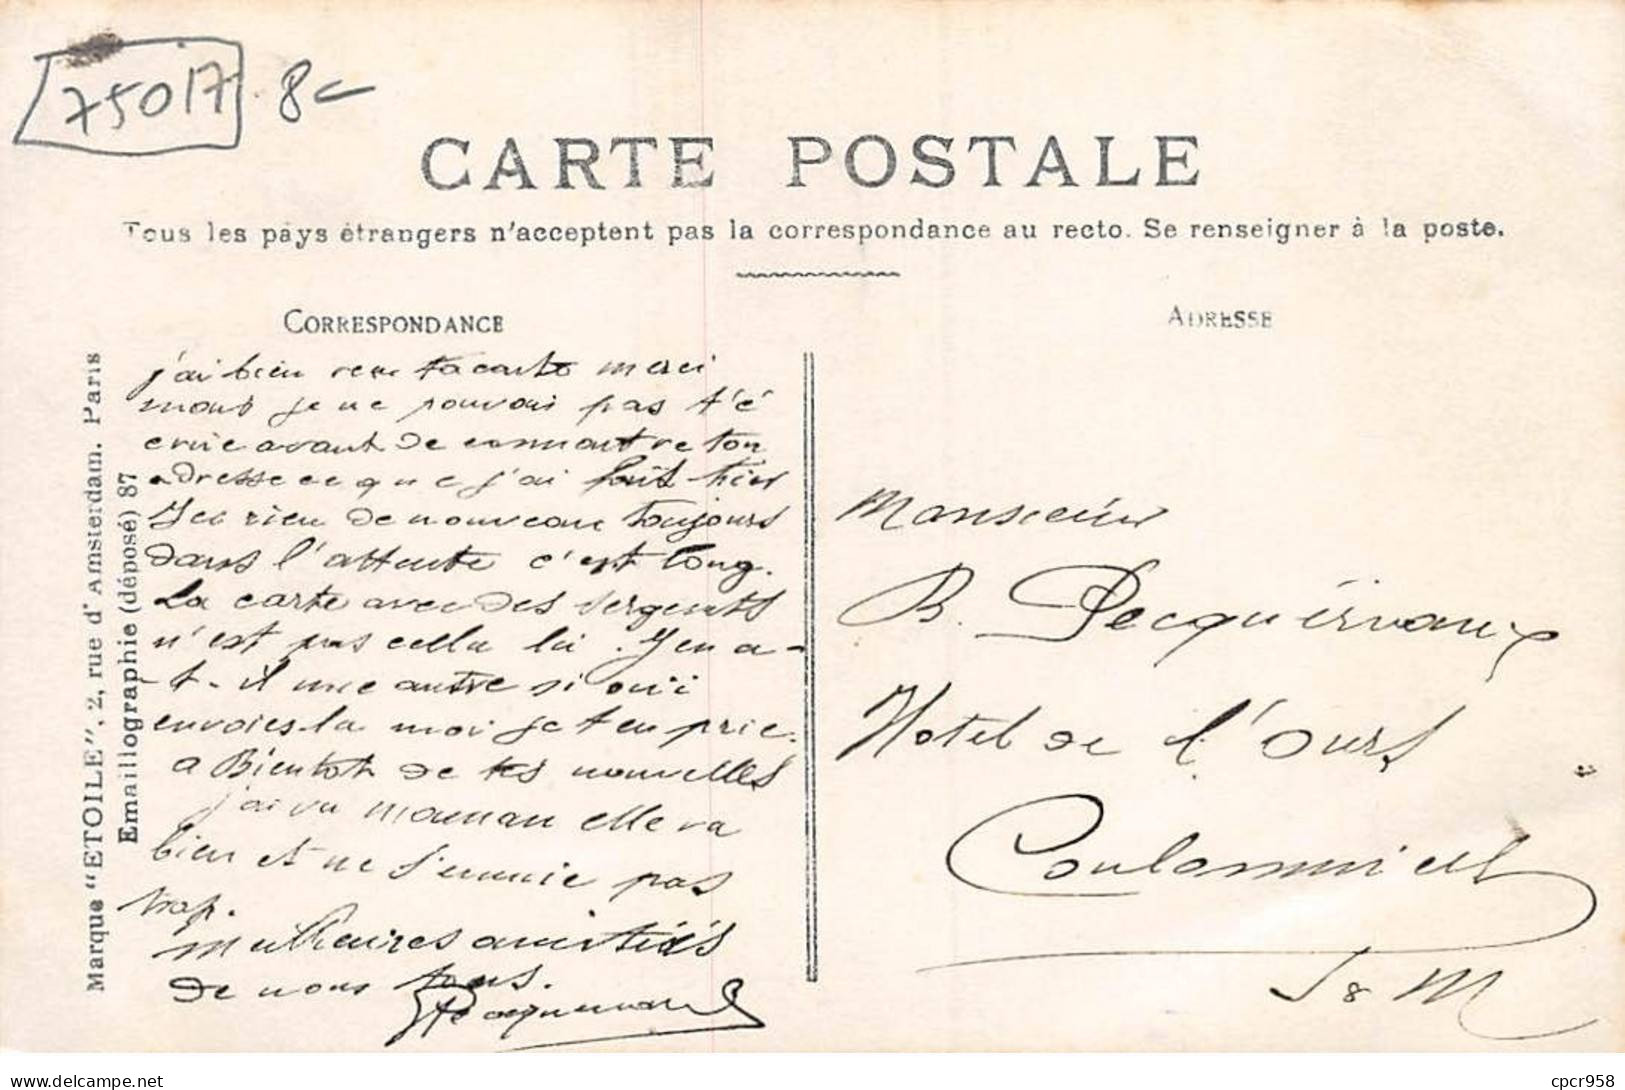 75017 8
CARTE POSTALE
Tous les pays étrangers n'acceptent pas la correspondance au recto. Se renseigner à la poste.
CORRESPONDANCE
ADRESSE
Marque "ETOILE", 2, rue d'Amsterdam. Paris
Emaillographie (déposé) 87
j'ai bien reçu ta carte merci
mais je ne pouvais pas t'é
crire avant de connaitre ton
adresse ce que j'ai fait hier
Ici rien de nouveau toujours
dans l'attente c'est long.
La carte avec des sergents
n'est pas cella la. Y en a-
-t-il une autre si oui
envoies-la moi je t en prie.
a Bientot de tes nouvelles
j'ai vu maman elle va
bien et ne s'ennuie pas
trop.
Meilleures amitiés
de nous tous.
Monsieur
B. Pecquériaux
Hotel de l'Ours
Coulommiers
S & M
cpcr958